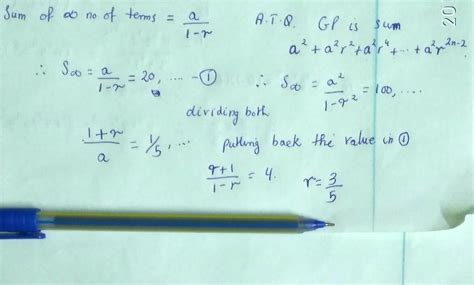 Sum of ∞ no of terms = a/(1-r)
A.T.Q. GP is sum
a² + a²r² + a²r⁴ + ... + a²r^(2n-2)
∴ S∞ = a/(1-r) = 20, .... - ①
∴ S∞ = a²/(1-r²) = 100, ....
dividing both
(1+r)/a = 1/5, ...
putting back the value in ①
(r+1)/(1-r) = 4.
r = 3/5
20